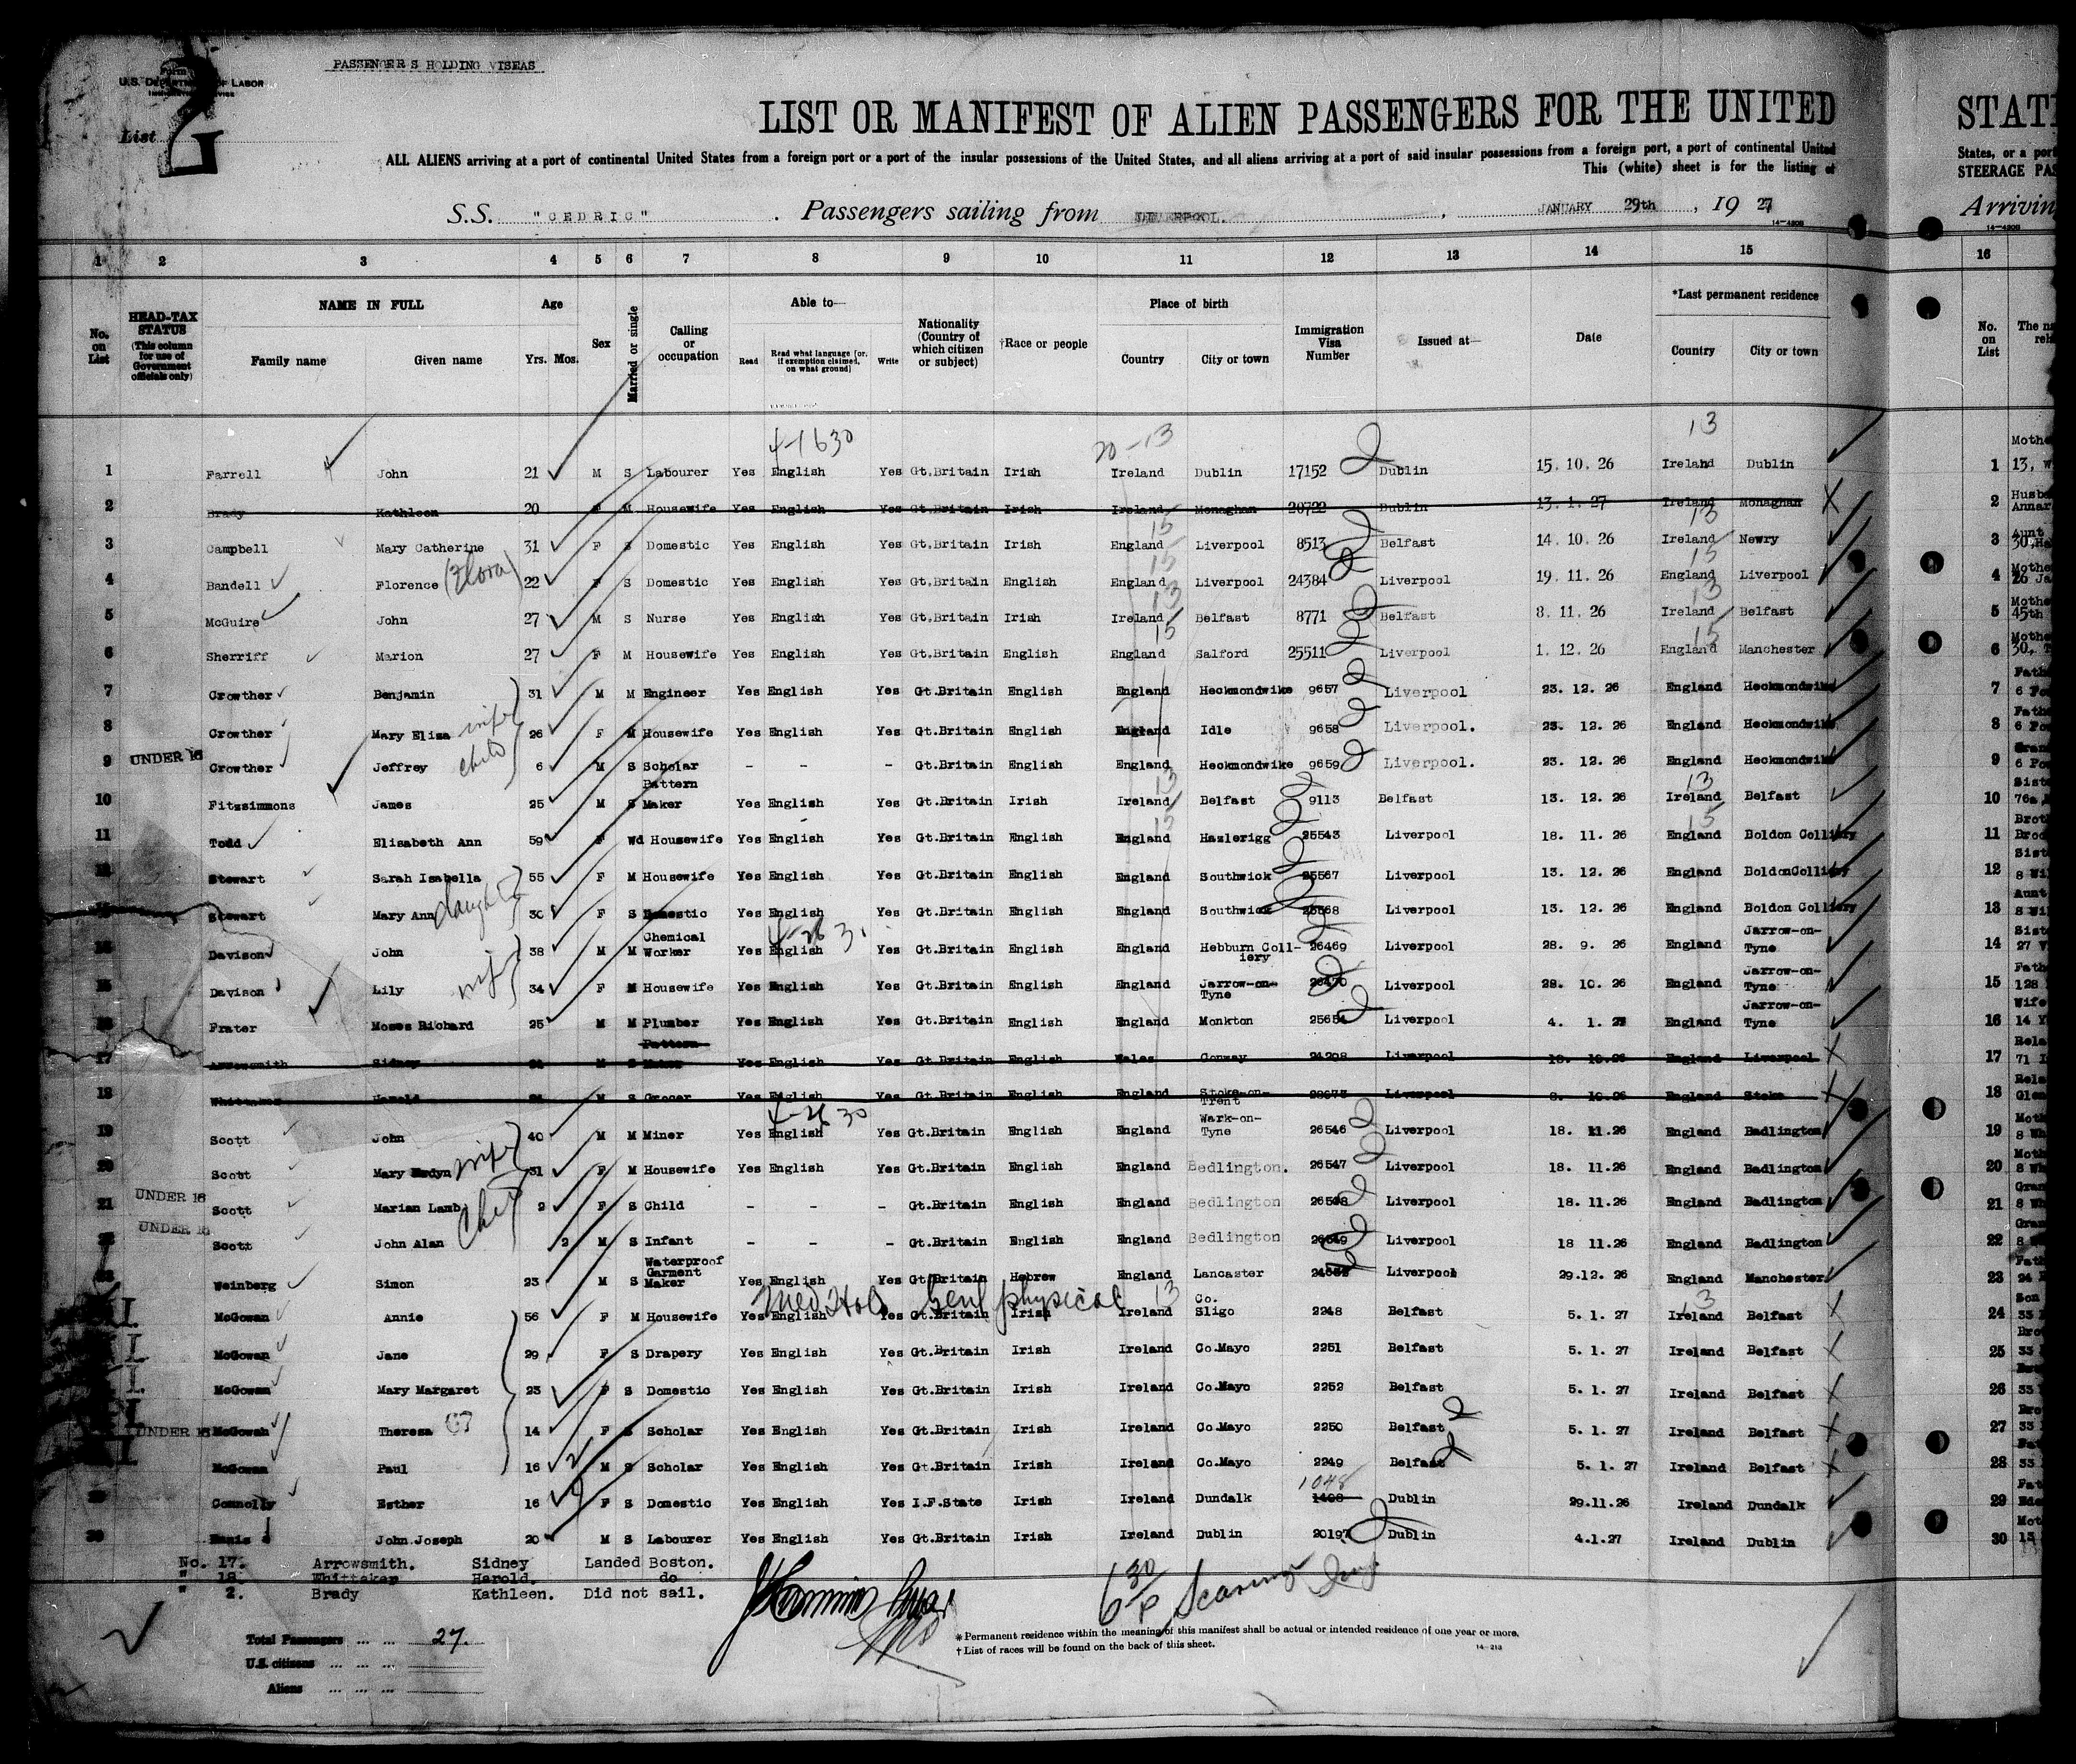 PASSENGERS HOLDING VISEAS
U.S. DEPARTMENT OF LABOR
List 2
LIST OR MANIFEST OF ALIEN PASSENGERS FOR THE UNITED
ALL ALIENS arriving at a port of continental United States from a foreign port or a port of the insular possessions of the United States, and all aliens arriving at a port of said insular possessions from a foreign port, a port of continental United
This (white) sheet is for the listing of
S.S. "CEDRIC" . Passengers sailing from LIVERPOOL. , JANUARY 29th , 19 27
14-430B
1 2 3 4 5 6 7 8 9 10 11 12 13 14 15
No. on List
HEAD-TAX STATUS (This column for use of Government officials only)
NAME IN FULL
Family name Given name
Age
Yrs. Mos.
Sex
Married or single
Calling or occupation
Able to—
Read Read what language [or, if exemption claimed, on what ground] Write
Nationality (Country of which citizen or subject)
†Race or people
Place of birth
Country City or town
Immigration Visa Number
Issued at—
Date
*Last permanent residence
Country City or town
4-1630 20-13 13
1 Farrell John 21 M S Labourer Yes English Yes Gt.Britain Irish Ireland Dublin 17152 Dublin 15.10.26 Ireland Dublin
2 Brady Kathleen 20 F M Housewife Yes English Yes Gt.Britain Irish Ireland Monaghan 20722 Dublin 13.1.27 Ireland Monaghan
3 Campbell Mary Catherine 31 F S Domestic Yes English Yes Gt.Britain Irish England Liverpool 8513 Belfast 14.10.26 Ireland Newry
4 Bandell Florence (Flora) 22 F S Domestic Yes English Yes Gt.Britain English England Liverpool 24384 Liverpool 19.11.26 England Liverpool
5 McGuire John 27 M S Nurse Yes English Yes Gt.Britain Irish Ireland Belfast 8771 Belfast 8.11.26 Ireland Belfast
6 Sherriff Marion 27 F M Housewife Yes English Yes Gt.Britain English England Salford 25511 Liverpool 1.12.26 England Manchester
7 Crowther Benjamin 31 M M Engineer Yes English Yes Gt.Britain English England Heckmondwike 9657 Liverpool 23.12.26 England Heckmondwike
8 Crowther Mary Eliza wife 26 F M Housewife Yes English Yes Gt.Britain English England Idle 9658 Liverpool. 23.12.26 England Heckmondwike
UNDER 16
9 Crowther Jeffrey child 6 M S Scholar - - - Gt.Britain English England Heckmondwike 9659 Liverpool. 23.12.26 England Heckmondwike
10 Fitzsimmons James 25 M S Pattern Maker Yes English Yes Gt.Britain Irish Ireland Belfast 9113 Belfast 13.12.26 Ireland Belfast
11 Todd Elisabeth Ann 59 F Wd Housewife Yes English Yes Gt.Britain English England Hazlerigg 25543 Liverpool 18.11.26 England Boldon Colliery
12 Stewart Sarah Isabella 55 F M Housewife Yes English Yes Gt.Britain English England Southwick 25567 Liverpool 13.12.26 England BoldonColliery
Stewart Mary Ann daughter 30 F S Domestic Yes English Yes Gt.Britain English England Southwick 25568 Liverpool 13.12.26 England Boldon Colliery
Davison John 38 M M Chemical Worker Yes English Yes Gt.Britain English England Hebburn Coll-iery 26469 Liverpool 28.9.26 England Jarrow-on-Tyne
Davison Lily wife 34 F M Housewife Yes English Yes Gt.Britain English England Jarrow-on-Tyne 26470 Liverpool 28.10.26 England Jarrow-on-Tyne
Frater Moses Richard 25 M M Plumber Yes English Yes Gt.Britain English England Monkton 25654 Liverpool 4.1.27 England Jarrow-on-Tyne
17 Arrowsmith Sidney M S Pattern Maker Yes English Yes Gt.Britain English Wales Conway 24298 Liverpool England Liverpool
18 Whittaker Harold M S Grocer Yes English Yes Gt.Britain English England Stoke-on-Trent Liverpool England Stoke
19 Scott John 40 M M Miner Yes English Yes Gt.Britain English England Wark-on-Tyne 26546 Liverpool 18.11.26 England Badlington
20 Scott Mary wife 31 F M Housewife Yes English Yes Gt.Britain English England Bedlington. 26547 Liverpool 18.11.26 England Badlington
UNDER 16
21 Scott Marian Lamb 2 F S Child - - - Gt.Britain English England Bedlington 26548 Liverpool 18.11.26 England Badlington
UNDER 16
Scott John Alan 2 M S Infant - - - Gt.Britain English England Bedlington 26549 Liverpool 18 11.26 England Badlington
Weinberg Simon 23 M S Waterproof Garment Maker Yes English Yes Gt.Britain Hebrew England Lancaster Liverpool 29.12.26 England Manchester
Med. Hold Genl physical
McGowan Annie 56 F M Housewife Yes English Yes Gt.Britain Irish Ireland Co. Sligo 2248 Belfast 5.1.27 Ireland Belfast
McGowan Jane 29 F S Drapery Yes English Yes Gt.Britain Irish Ireland Co.Mayo 2251 Belfast 5.1.27 Ireland Belfast
McGowan Mary Margaret 23 F S Domestic Yes English Yes Gt.Britain Irish Ireland Co.Mayo 2252 Belfast 5.1.27 Ireland Belfast
UNDER 16 McGowan Theresa 14 F S Scholar Yes English Yes Gt.Britain Irish Ireland Co.Mayo 2250 Belfast 5.1.27 Ireland Belfast
McGowan Paul 16 M S Scholar Yes English Yes Gt.Britain Irish Ireland Co.Mayo 2249 Belfast 5.1.27 Ireland Belfast
1048
Connolly Esther 16 F S Domestic Yes English Yes I.F.State Irish Ireland Dundalk 1408 Dublin 29.11.26 Ireland Dundalk
Ennis John Joseph 20 M S Labourer Yes English Yes Gt.Britain Irish Ireland Dublin 20197 Dublin 4.1.27 Ireland Dublin
No. 17. Arrowsmith. Sidney Landed Boston.
" 18. Whittaker Harold. do
" 2. Brady Kathleen. Did not sail.
Total Passengers ... ... 27.
U.S. citizens ... ... ...
Aliens ... ... ...
*Permanent residence within the meaning of this manifest shall be actual or intended residence of one year or more.
†List of races will be found on the back of this sheet.
14-213
STAT
States, or a por
STEERAGE PAS
Arrivin
14-430B
16
No. on List
1 13, W
2
3
4
5 45th
6 30,
7
8
9
10 76a
11
12
13
14
15 128
16
17 71
18
19
20
21
22
23
24
25
26
27
28
29
30